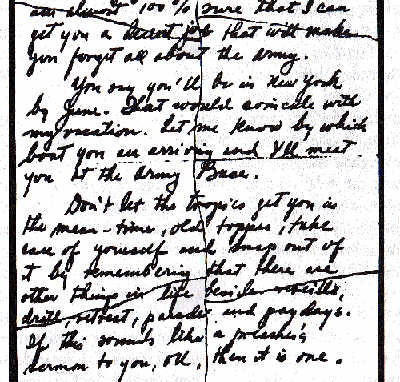 am almost 100% sure that I can
get you a secret job that will make
you forget all about the army.
You say you'll be in New York
by June. That would coincide with
my vacation. Let me know by which
boat you are arriving and I'll meet
you at the Army Base.
Don't let the tropics get you in
the mean-time, old topper, take
care of yourself and snap out of
it by remembering that there are
other things in life beside reveille,
drill, retreat, parades and paydays.
If this sounds like a preacher's
sermon to you, ok, then it is one.